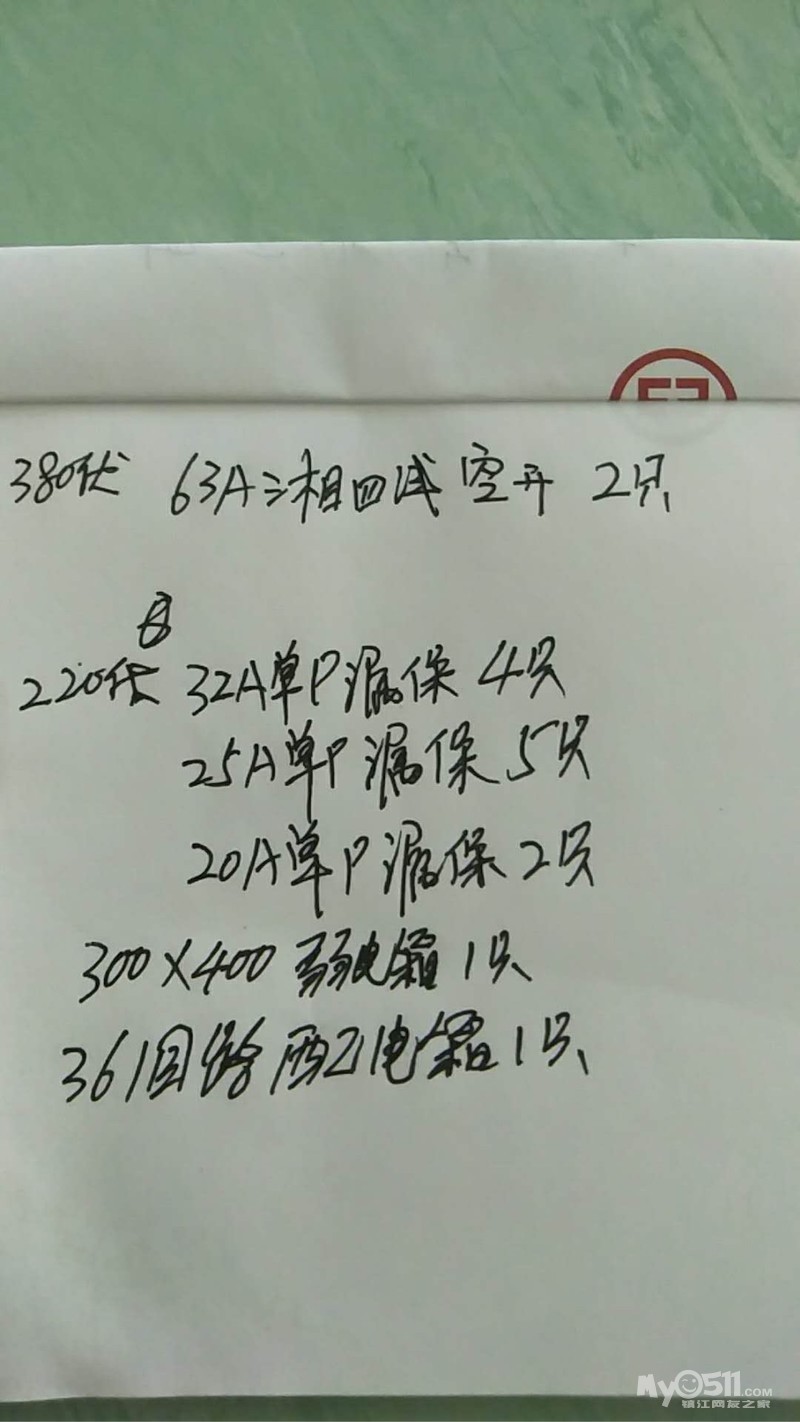 380伏 63A三相四线空开 2只
220伏 32A单P漏保 4只
25A单P漏保 5只
20A单P漏保 2只
300×400 弱电箱 1只
36个回路配电箱 1只
My0511.COM
镇江网友之家